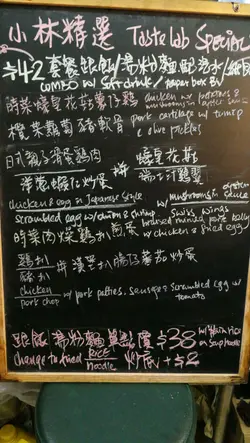 小林精選 Taste Lab Special
$42 套餐跟飯/湯粉麵配汽水/紙包
combo w/ soft drink / paper box Bev
時菜蠔皇花菇 chicken w/ potatoes &
mushrooms in oyster sauce
欖菜蘿蔔豬軟骨 pork cartilage w/ turnip
& olive pickles
日式親子滑蛋雞肉 拼 蠔皇花菇
洋蔥蝦仁炒蛋 瑞士雞翼
chicken & egg in Japanese style w/ mushrooms in oyster sauce
scrambled egg w/ onion & shrimp swiss wings
時菜肉燥雞扒煎蛋 braised minced pork belly
w/ chicken & fried egg
雞扒
豬扒 拼 漢堡扒 腸仔蕃茄炒蛋
chicken
pork chop w/ pork patties, sausage & scrambled egg w/
tomato
跟飯/湯粉麵 單點價 $38 w/ plain rice
or soup noodle
change to fried RICE
NOODLE 炒底 + $2